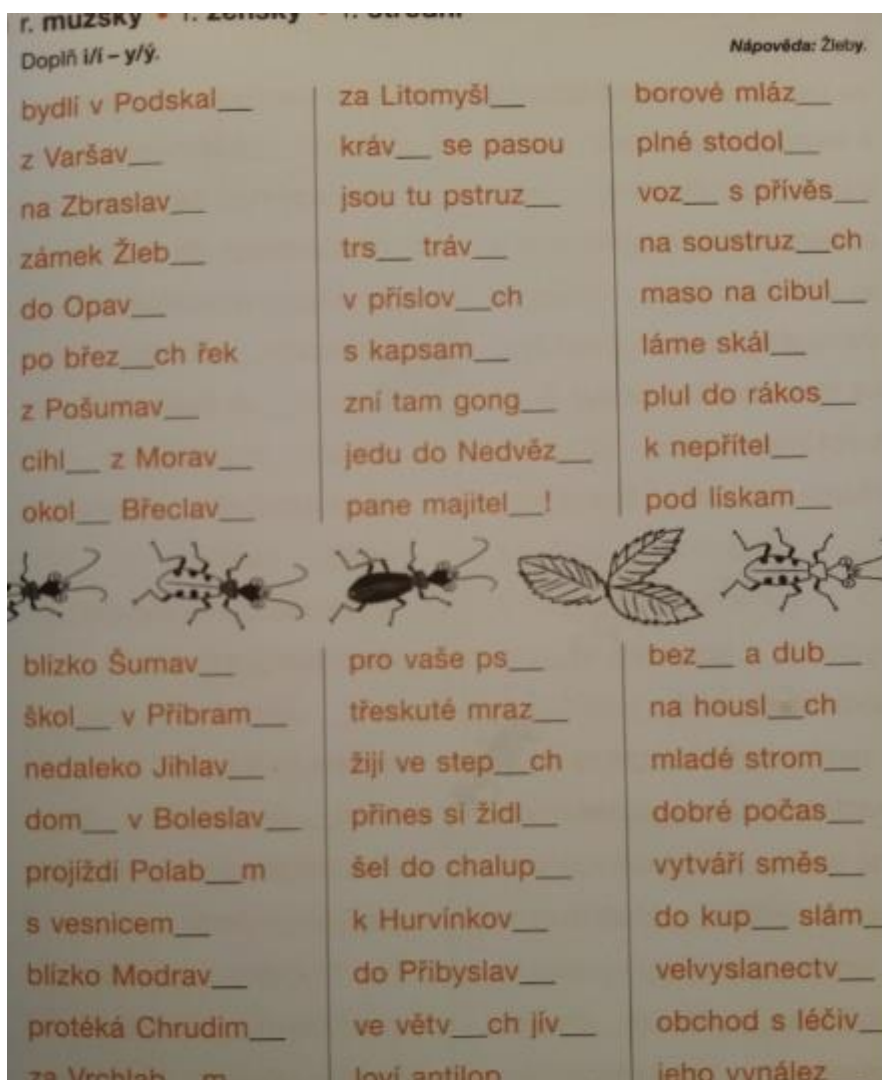 r. mužský • r. ženský • r. střední
Doplň i/í – y/ý.
Nápověda: Žleby.
bydlí v Podskal__
z Varšav__
na Zbraslav__
zámek Žleb__
do Opav__
po břez__ch řek
z Pošumav__
cihl__ z Morav__
okol__ Břeclav__
za Litomyšl__
kráv__ se pasou
jsou tu pstruz__
trs__ tráv__
v příslov__ch
s kapsam__
zní tam gong__
jedu do Nedvěz__
pane majitel__!
borové mláz__
plné stodol__
voz__ s přívěs__
na soustruz__ch
maso na cibul__
láme skál__
plul do rákos__
k nepřítel__
pod lískam__
blízko Šumav__
škol__ v Příbram__
nedaleko Jihlav__
dom__ v Boleslav__
projíždí Polab__m
s vesnicem__
blízko Modrav__
protéká Chrudim__
za Vrchlab__m
pro vaše ps__
třeskuté mraz__
žijí ve step__ch
přines si židl__
šel do chalup__
k Hurvínkov__
do Přibyslav__
ve větv__ch jív__
loví antilop
bez__ a dub__
na housl__ch
mladé strom__
dobré počas__
vytváří směs__
do kup__ slám__
velvyslanectv__
obchod s léčiv__
jeho vynález